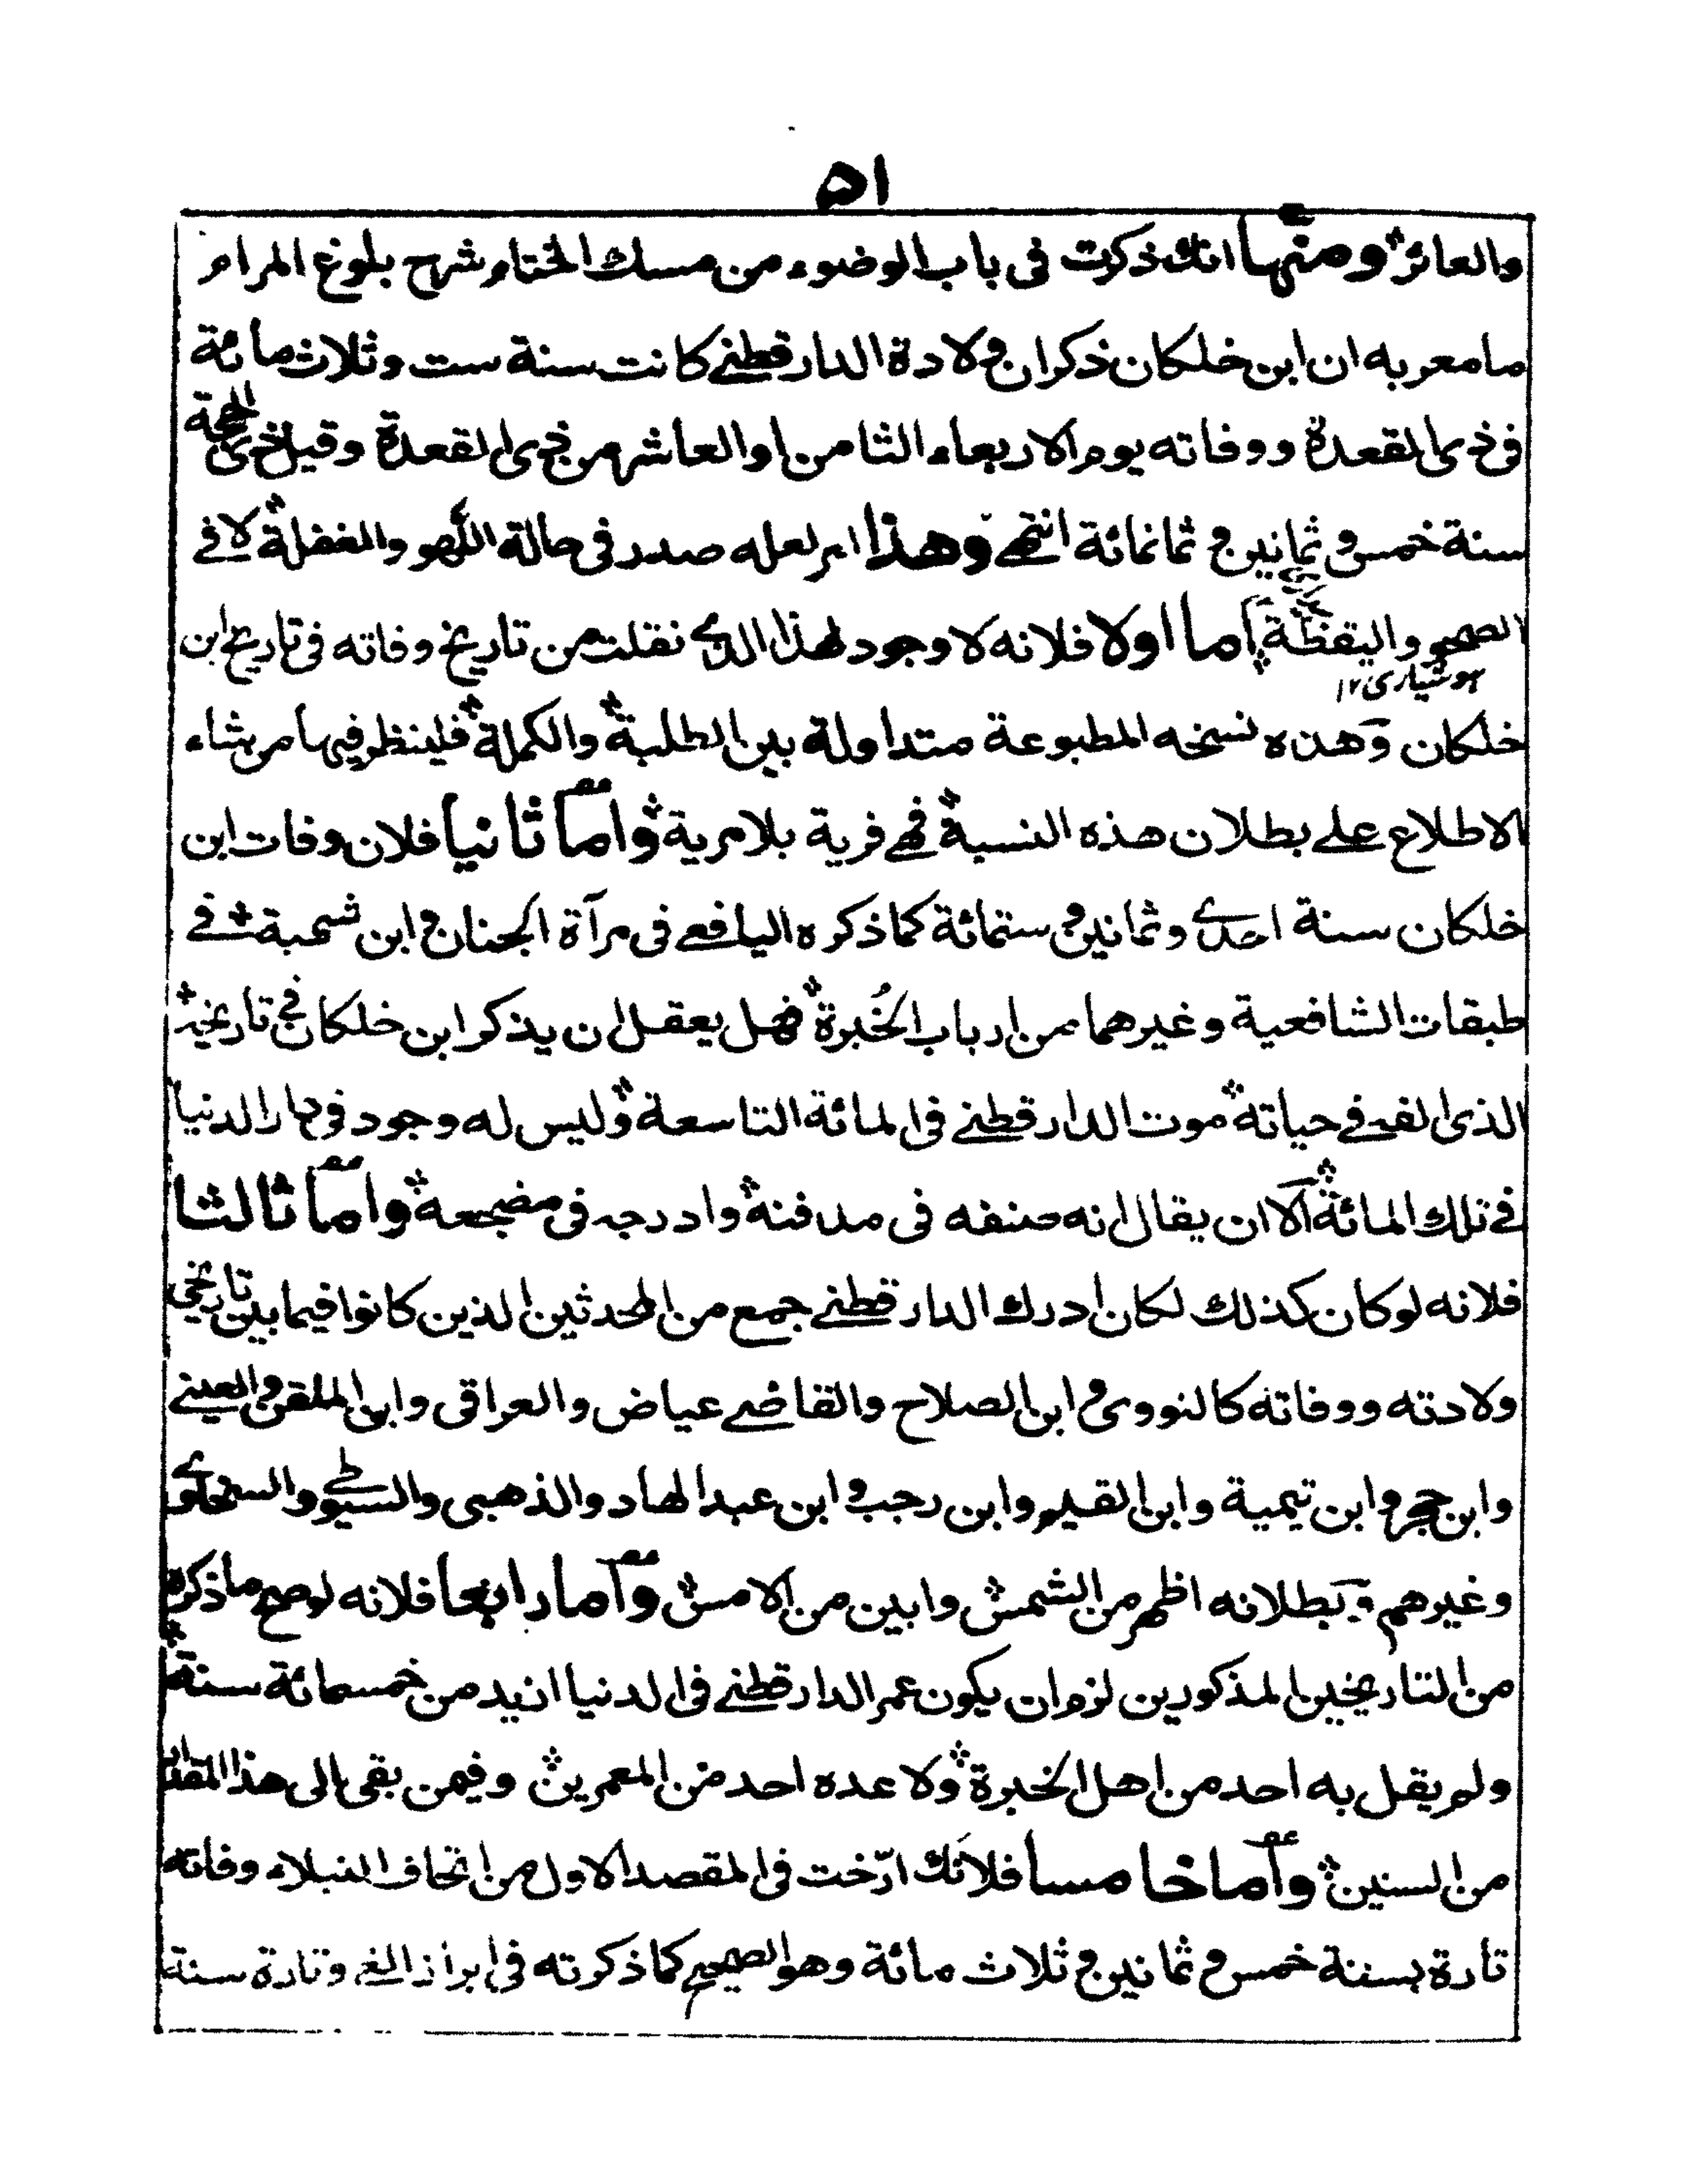 ٥١
والعائر ومنها انك ذكرت فى باب الوضوء من مسك الختام شرح بلوغ المرام
ما معربه ان ابن خلكان ذكر ان ولادة الدارقطنے كانت سنة ست وثلاث مائة
فى ذى القعدة ووفاته يوم الاربعاء الثامن او العاشر من ذى القعدة وقيل ذى الحجة
سنة خمس و ثمانين و ثمانمائة انتهى وهذا امر لعله صدر فى حالة اللهو والغفلة لا فے
الصحو واليقظة اما اولا فلانه لا وجود لهذا الذے نقلت من تاريخ وفاته فى تاريخ ابن
هوشیاری ١٢
خلكان وهذه نسخه المطبوعة متداولة بين الطلبة والكملة فلينظر فيها من شاء
الاطلاع علے بطلان هذه النسبة فهے فرية بلا مرية واما ثانيا فلان وفات ابن
خلكان سنة احدے وثمانين و ستمائة كما ذكره اليافعے فى مرآة الجنان و ابن شهبة فے
طبقات الشافعية وغيرهما من ارباب الخُبرة فهل يعقل ان يذكر ابن خلكان فى تاريخه
الذى الفه فے حياته موت الدارقطنے فى المائة التاسعة وليس له وجود فى دار الدنيا
فے تلك المائة الا ان يقال انه صنفه فى مدفنه وادرجه فى مضجعه واما ثالثا
فلانه لو كان كذلك لكان ادرك الدارقطنے جمع من المحدثين الذين كانوا فيما بين تاريخى
ولادته ووفاته كالنووى و ابن الصلاح والقاضے عياض والعراقى وابن الملقن والعينے
وابن حجر وابن تيمية وابن القيم وابن رجب و ابن عبد الهاد والذهبى والسيوطے والسخاوے
وغيرهم وبطلانه اظهر من الشمس وابين من الامس واما رابعا فلانه لو صح ما ذكره
من التاريخين المذكورين لزم ان يكون عمر الدارقطنے فى الدنيا ازيد من خمسمائة سنة
ولم يقل به احد من اهل الخبرة ولا عده احد من المعمرين وفيمن بقى الى هذا المقدار
من السنين واما خامسا فلانك ارّخت فى المقصد الاول من اتحاف النبلاء وفاته
تارة بسنة خمس و ثمانين و ثلاث مائة وهو الصحيح كما ذكرته فى ابراز الغے وتارة سنة